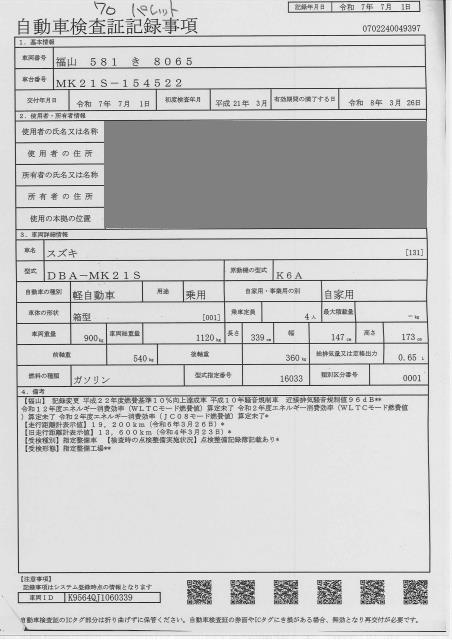 70 パレット
記録年月日 令和 7年 7月 1日
自動車検査証記録事項
0702240049397
1．基本情報
車両番号 福山 581 き 8065
車台番号 MK21S－154522
交付年月日 令和 7年 7月 1日 初度検査年月 平成21年 3月 有効期間の満了する日 令和 8年 3月26日
2．使用者・所有者情報
使用者の氏名又は名称
使用者の住所
所有者の氏名又は名称
所有者の住所
使用の本拠の位置
3．車両詳細情報
車名 スズキ [131]
型式 DBA－MK21S 原動機の型式 K6A
自動車の種別 軽自動車 用途 乗用 自家用・事業用の別 自家用
車体の形状 箱型 [001] 乗車定員 4人 最大積載量 －kg
車両重量 900kg 車両総重量 1120kg 長さ 339cm 幅 147cm 高さ 173cm
前軸重 540kg 後軸重 360kg 総排気量又は定格出力 0.65 L
燃料の種類 ガソリン 型式指定番号 16033 類別区分番号 0001
4．備考
【福山】 記録変更 平成22年度燃費基準10％向上達成車 平成10年騒音規制車 近接排気騒音規制値96dB**
令和12年度エネルギー消費効率（WLTCモード燃費値）算定未了 令和2年度エネルギー消費効率（WLTCモード燃費値
）算定未了 令和2年度エネルギー消費効率（JC08モード燃費値）算定未了*
【走行距離計表示値】19，200km（令和6年3月26日）*
【旧走行距離計表示値】13，600km（令和4年3月23日）*
【受検種別】指定整備車 【検査時の点検整備実施状況】点検整備記録簿記載あり*
【受検形態】指定整備工場**
【注意事項】
記録事項はシステム登録時点の情報となります
車両ID K9564QJ1060339
自動車検査証のICタグ部分は折り曲げずに保管ください。自動車検査証の券面やICタグにき損がある場合、無効となり再交付が必要です。